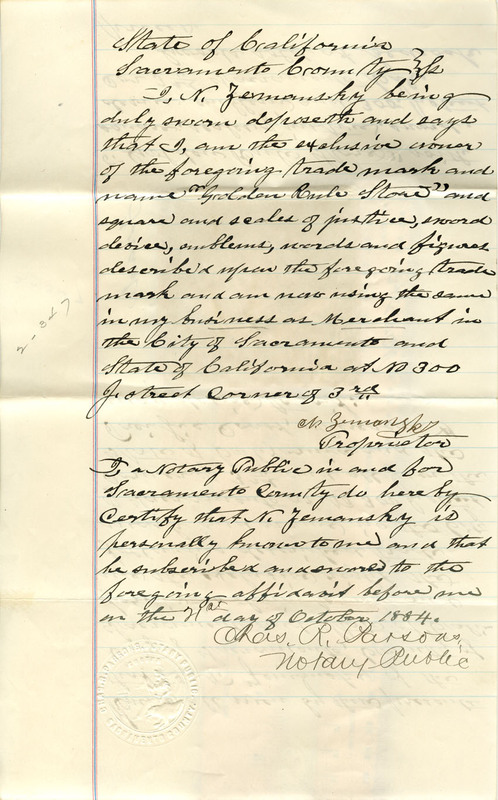 State of California
Sacramento County } SS
I, N. Zemansky being
duly sworn deposeth and says
that I, am the exclusive owner
of the foregoing trade mark and
name "Golden Rule Store" and
square and scales of justice, sword
device, emblems, words and figures
described upon the foregoing trade
mark and am now using the same
in my business as Merchant in
the City of Sacramento and
State of California at No 300
J. Street Corner of 3rd
N. Zemansky
Proprietor
I, a Notary Public in and for
Sacramento County do hereby
Certify that N. Zemansky is
personally known to me and that
he subscribed and swore to the
foregoing affidavit before me
on the day of October 1884.
Chas. R. Parsons,
Notary Public
2-347